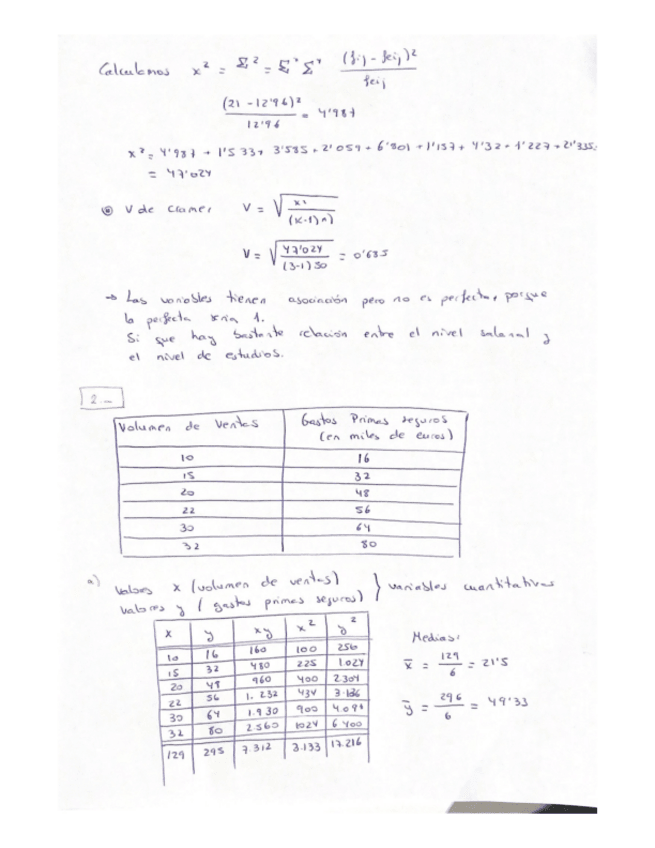 Calculamos x² = Σ² = Σ Σ (fij - feij)² / feij
(21 - 12'96)² / 12'96 = 4'987
x² = 4'987 + 1'533 + 3'585 + 2'059 + 6'801 + 1'157 + 4'32 + 1'227 + 21'335
= 47'024
V de Cramer V = √ x² / (k-1) n
V = √ 47'024 / (3-1) 50 = 0'685
→ Las variables tienen asociación pero no es perfecta, porque
la perfecta sería 1.
Si que hay bastante relación entre el nivel salarial y
el nivel de estudios.
2.-
Volumen de Ventas Gastos Primas seguros
(en miles de euros)
10 16
15 32
20 48
22 56
30 64
32 80
a) Valores x (volumen de ventas) } variables cuantitativas
valores y (gastos primas seguros)
x y xy x² y²
10 16 160 100 256
15 32 480 225 1.024
20 48 960 400 2.304
22 56 1.232 434 3.136
30 64 1.930 900 4.09
32 80 2.560 1024 6400
129 295 7.312 3.133 17.216
Medias:
x̄ = 129 / 6 = 21'5
ȳ = 296 / 6 = 49'33